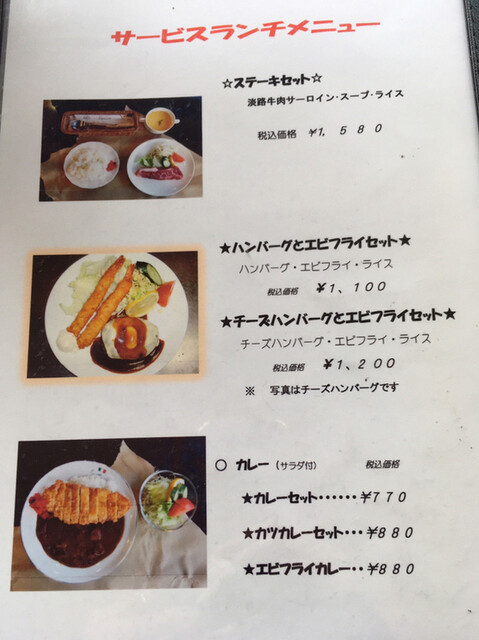 サービスランチメニュー
☆ステーキセット☆
淡路牛肉サーロイン・スープ・ライス
税込価格 ￥１，５８０
★ハンバーグとエビフライセット★
ハンバーグ・エビフライ・ライス
税込価格 ￥１、１００
★チーズハンバーグとエビフライセット★
チーズハンバーグ・エビフライ・ライス
税込価格 ￥１、２００
※ 写真はチーズハンバーグです
○ カレー（サラダ付） 税込価格
★カレーセット・・・・・・￥７７０
★カツカレーセット・・・￥８８０
★エビフライカレー・・￥８８０